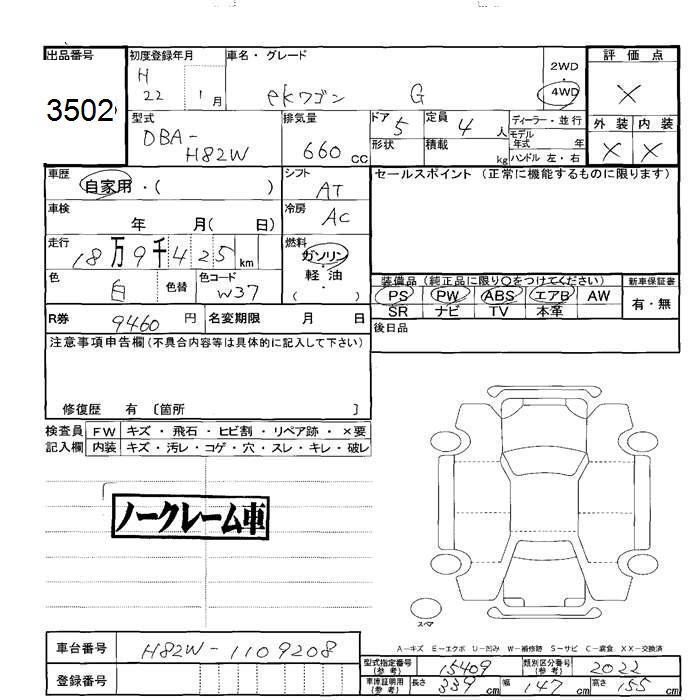 出品番号
3502
初度登録年月
H
22 1月
車名・グレード
ekワゴン G
2WD
・
4WD
評価点
×
外装 内装
× ×
型式
DBA-
H82W
排気量
660 cc
ドア 5
形状
定員 4 人
積載 kg
ディーラー・並行
モデル
年式 年
ハンドル 左・右
車歴
自家用・( )
シフト
AT
セールスポイント (正常に機能するものに限ります)
車検
年 月( 日)
冷房
AC
走行
18万9千425km
燃料
ガソリン
軽・油
( )
色
白
色替
色コード
W37
装備品 (純正品に限り○をつけてください)
PS PW ABS エアB AW
SR ナビ TV 本革
新車保証書
有・無
R券 9460 円
名変期限 月 日
後日品
注意事項申告欄(不具合内容等は具体的に記入して下さい)
修復歴 有 〔箇所 〕
検査員 FW キズ・飛石・ヒビ割・リペア跡・×要
記入欄 内装 キズ・汚レ・コゲ・穴・スレ・キレ・破レ
ノークレーム車
スペア
A-キズ E-エクボ U-凹み W-補修跡 S-サビ C-腐食 XX-交換済
車台番号 H82W-1109208
登録番号
型式指定番号
(参考) 15409
類別区分番号
(参考) 2022
車庫証明用
(参考)
長さ 339 cm 幅 147 cm 高さ 155 cm